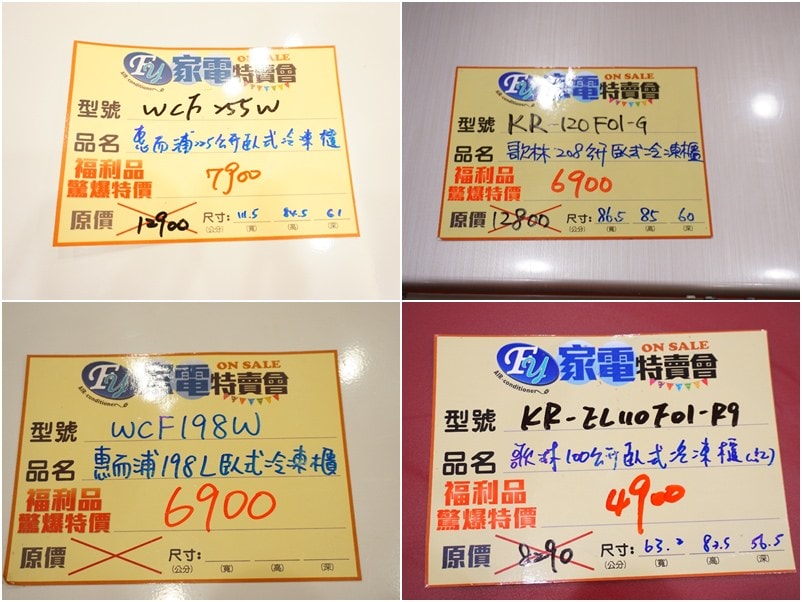 Fy 家電特賣會
ON SALE
AIR-conditioner
型號 WCF 255W
品名 惠而浦225公升臥式冷凍櫃
福利品
驚爆特價 7900
原價 12900 尺寸: 111.5 84.5 61
(公分) (寬) (高) (深)
Fy 家電特賣會
ON SALE
AIR-conditioner
型號 KR-120F01-G
品名 歌林208公升臥式冷凍櫃
福利品
驚爆特價 6900
原價 12800 尺寸: 86.5 85 60
(公分) (寬) (高) (深)
Fy 家電特賣會
ON SALE
AIR-conditioner
型號 WCF198W
品名 惠而浦198L臥式冷凍櫃
福利品
驚爆特價 6900
原價 尺寸:
(公分) (寬) (高) (深)
Fy 家電特賣會
ON SALE
AIR-conditioner
型號 KR-EL110F01-R9
品名 歌林100公升臥式冷凍櫃(紅)
福利品
驚爆特價 4900
原價 8290 尺寸: 63.2 82.5 56.5
(公分) (寬) (高) (深)